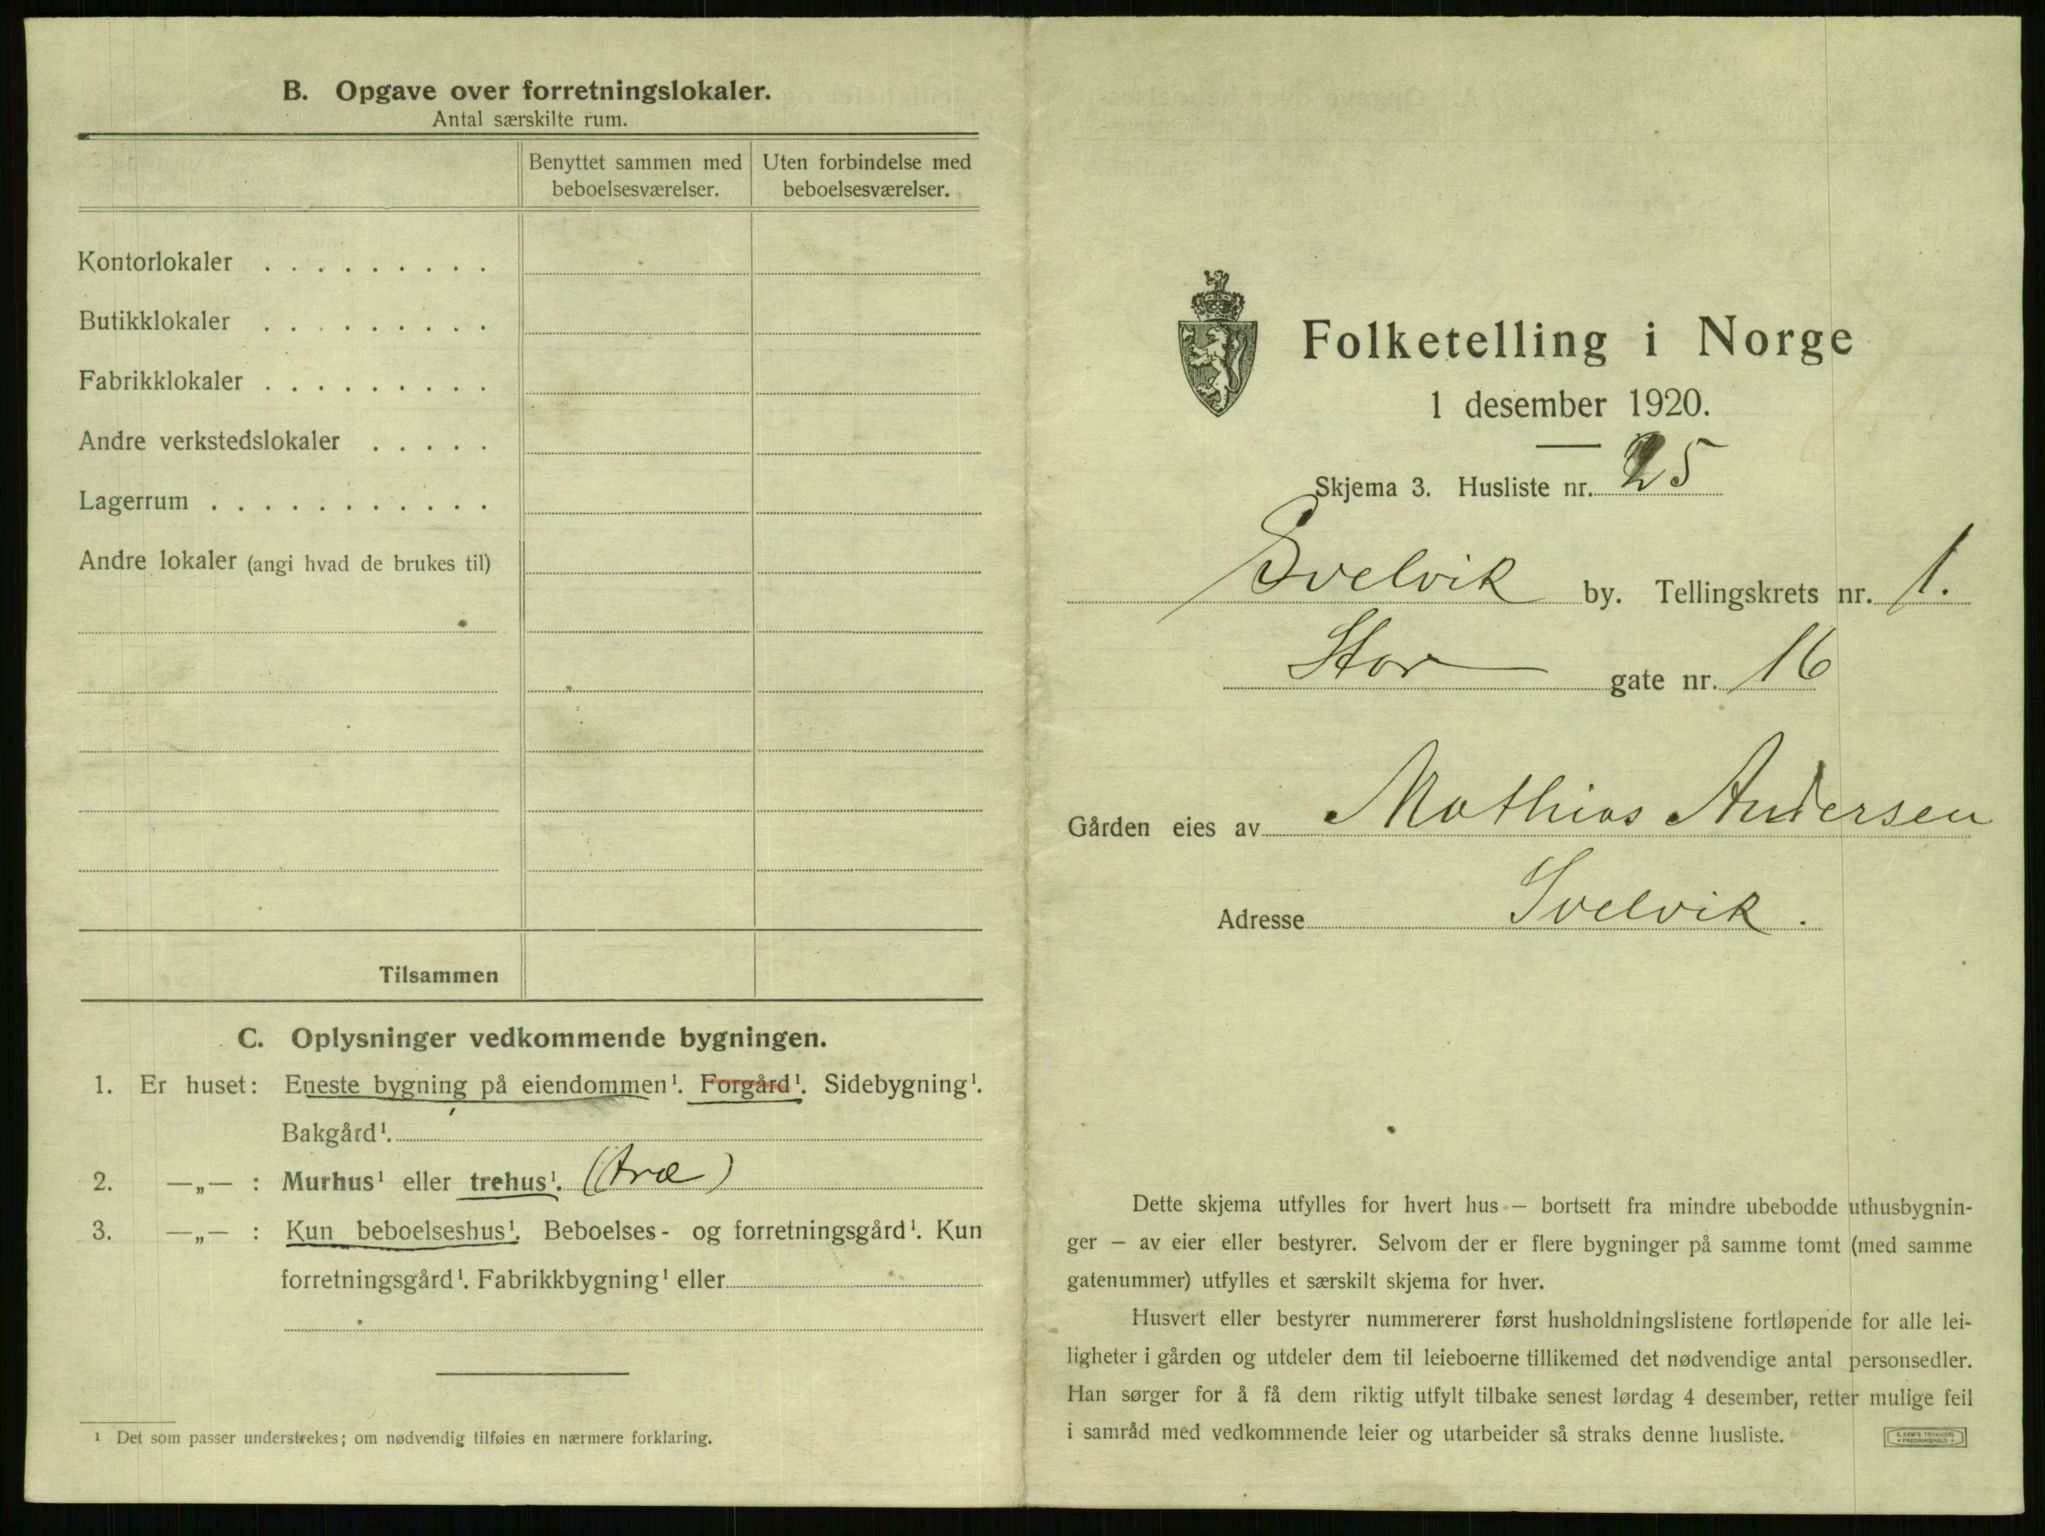 B. Opgave over forretningslokaler.
Antal særskilte rum.
Benyttet sammen med beboelsesværelser.
Uten forbindelse med beboelsesværelser.
Kontorlokaler . . . . . . . . .
Butikklokaler . . . . . . . . .
Fabrikklokaler . . . . . . . . .
Andre verkstedslokaler . . . . .
Lagerrum . . . . . . . . . . .
Andre lokaler (angi hvad de brukes til)
Tilsammen
C. Oplysninger vedkommende bygningen.
1. Er huset: Eneste bygning på eiendommen¹. Forgård¹. Sidebygning¹.
Bakgård¹.
2. —„— : Murhus¹ eller trehus¹. (træ)
3. —„— : Kun beboelseshus¹. Beboelses- og forretningsgård¹. Kun
forretningsgård¹. Fabrikkbygning¹ eller
¹ Det som passer understrekes; om nødvendig tilføies en nærmere forklaring.
Folketelling i Norge
1 desember 1920.
Skjema 3. Husliste nr. 25
Svelvik by. Tellingskrets nr. 1.
Stor gate nr. 16
Gården eies av Mathias Andersen
Adresse Svelvik.
Dette skjema utfylles for hvert hus — bortsett fra mindre ubebodde uthusbygnin-
ger — av eier eller bestyrer. Selvom der er flere bygninger på samme tomt (med samme
gatenummer) utfylles et særskilt skjema for hver.
Husvert eller bestyrer nummererer først husholdningslistene fortløpende for alle lei-
ligheter i gården og utdeler dem til leieboerne tillikemed det nødvendige antal personsedler.
Han sørger for å få dem riktig utfylt tilbake senest lørdag 4 desember, retter mulige feil
i samråd med vedkommende leier og utarbeider så straks denne husliste.